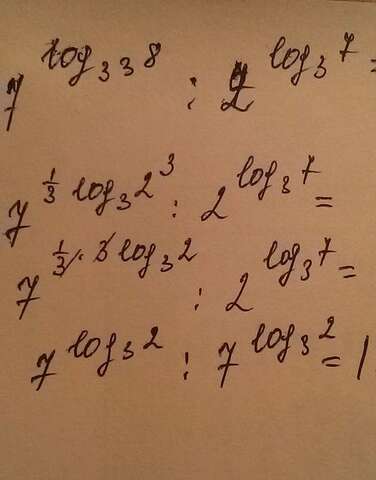 7^{log_{3^3} 8} : 2^{log_3 7} =
7^{\frac{1}{3} log_3 2^3} : 2^{log_3 7} =
7^{\frac{1}{3} · 3 log_3 2} : 2^{log_3 7} =
7^{log_3 2} : 7^{log_3 2} = 1